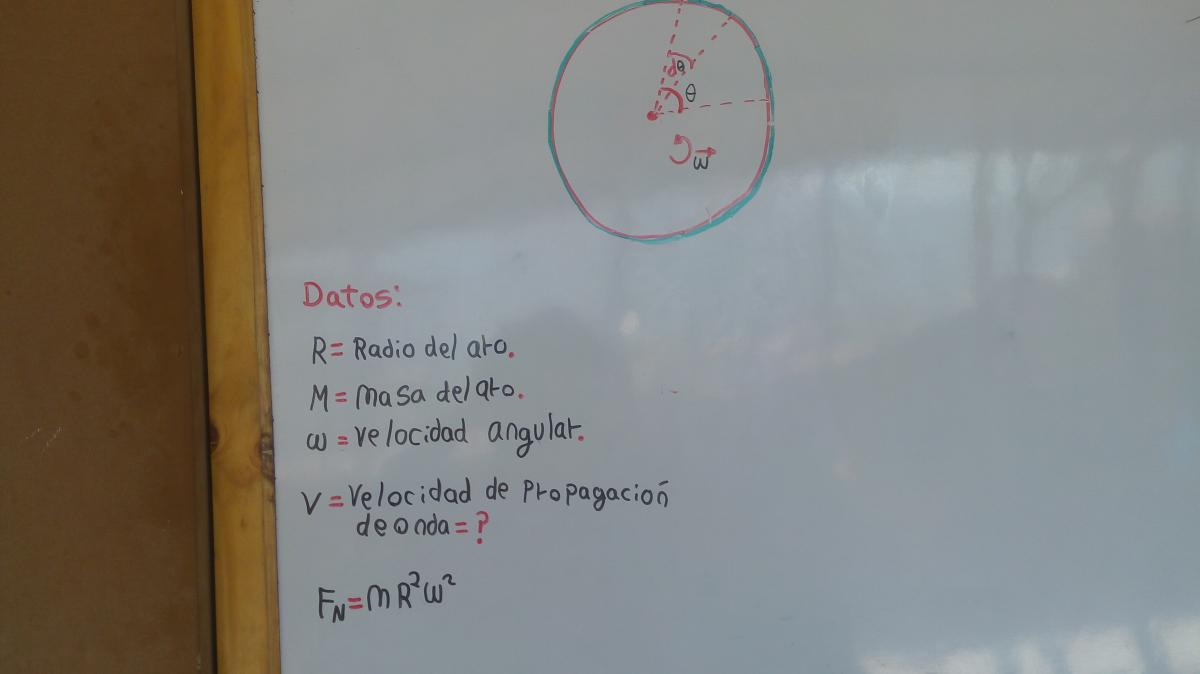 dθ
θ
ω
Datos:
R = Radio del aro.
M = masa del aro.
ω = velocidad angular.
V = velocidad de propagación
de onda = ?
F_N = mR²ω²